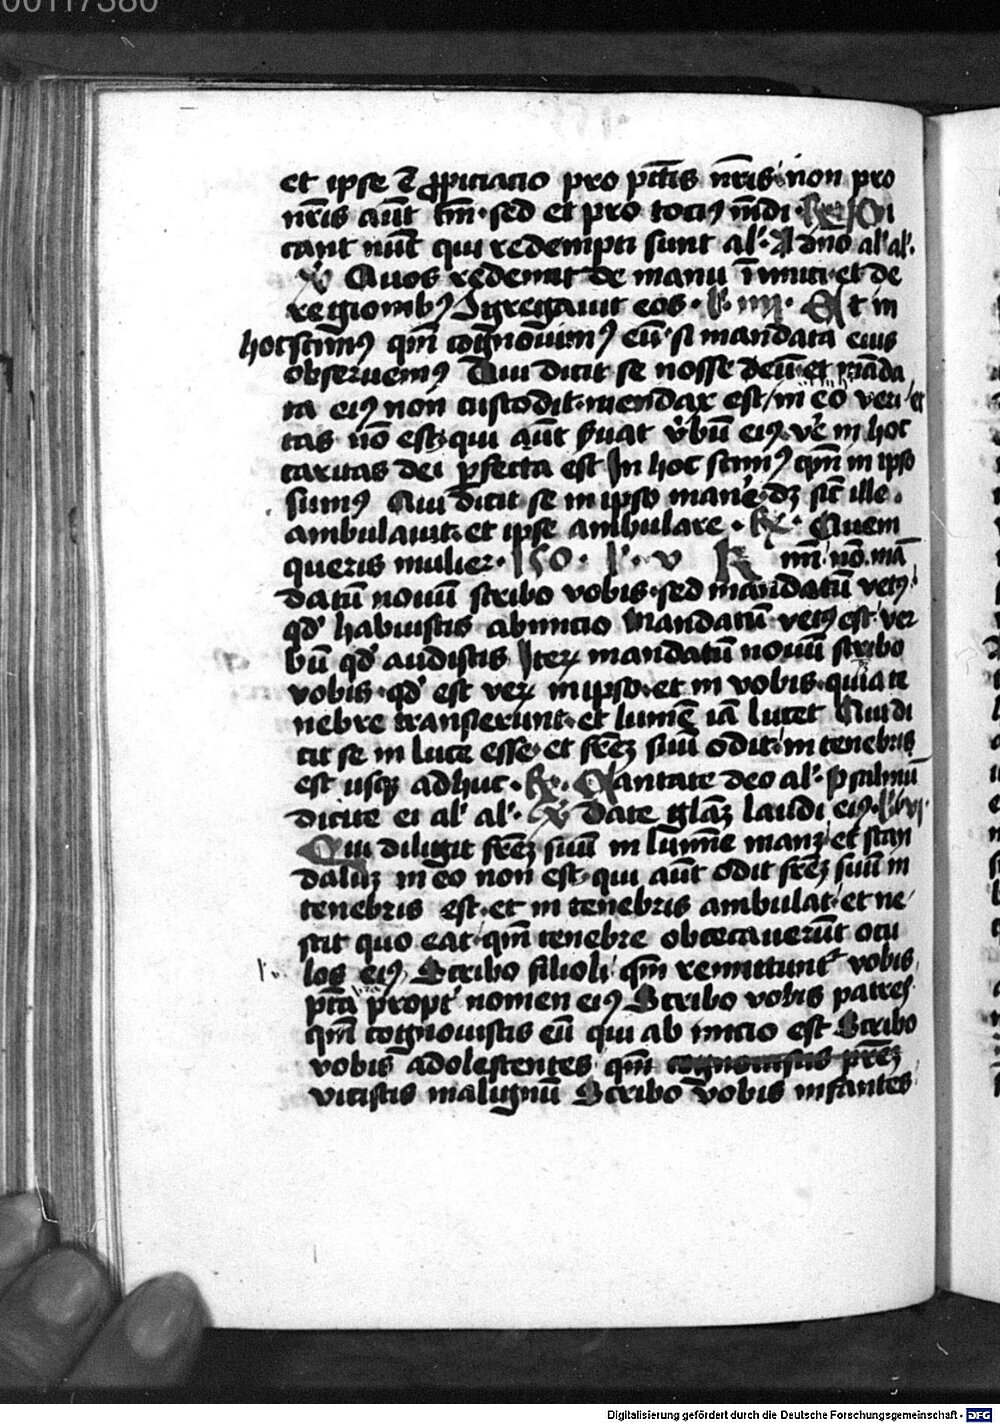 00117380
et ipse ē ꝓpiciacio pro pctīs nr̄is non pro
nr̄is aūt tm̄ · sed et pro tociꝰ mūdi · Rx Di
cant nūc qui redempti sunt al' · A dn̄o al' al' ·
V̓ Quos redemit de manu inimici et de
regionibꝰ ꝯgregauit eos · l' iiij · Et in
hoc scimꝰ qm̄ cognouimꝰ eū · si mandata eius
obseruemꝰ Qui dicit se nosse deū et māda
ta eiꝰ non custodit mendax est / in eo veri
tas nō est · qui aūt ẜuat v̓bū eiꝰ ve᷑ in hoc
caritas dei ꝑfecta est In hoc scimꝰ qm̄ in ipso
sumꝰ Qui dicit se in ipso mane᷑ dꝫ sic̄ ille
ambulauit · et ipse ambulare · Rx · Quem
queris mulier · l' · v K mi · nō mā
datū nouū scribo vobis · sed mandatū vetꝰ
qd̓ habuistis ab inicio Mandatū vetꝰ est ver
bū qd̓ audistis Iteꝝ mandatū nouū scribo
vobis · qd̓ est veꝝ in ipso · et in vobis · quia te
nebre transierunt · et lumē iā lucet Qui di
cit se in luce esse · et frēꝫ suū odit in tenebris
est usqꝫ adhuc · Rx · Cantate deo al' · psalmū
dicite ei al' al' · V̓ Date glāꝫ laudi eiꝰ · l' vi ·
Qui diligit frēꝫ suū in lumīe manꝫ et scan
dalūꝫ in eo non est · qui aūt odit frēꝫ suū in
tenebris est · et in tenebris ambulat · et ne
scit quo eat · qm̄ tenebre obcecauerūt ocu
los eiꝰ Scribo filioli qm̄ remittunt᷑ vobis
pctā propt̓ nomen eiꝰ Scribo vobis patres
qm̄ cognouistis eū qui ab inicio est Scribo
vobis adolescentes qm̄ cognouistis prēꝫ
vicistis malignū Scribo vobis infantes
Digitalisierung gefördert durch die Deutsche Forschungsgemeinschaft - DFG